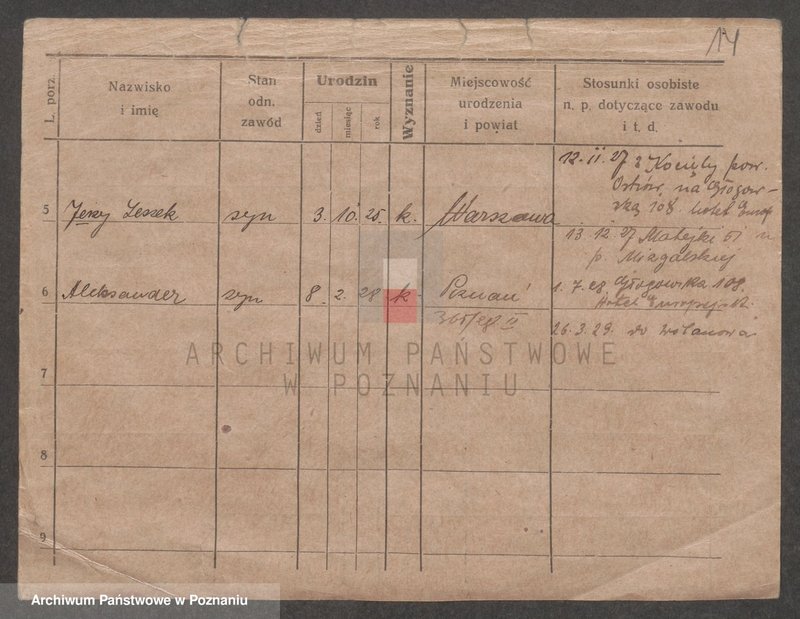 14
L. porz.
Nazwisko
i imię
Stan
odn.
zawód
Urodzin
dzień
miesiąc
rok
Wyznanie
Miejscowość
urodzenia
i powiat
Stosunki osobiste
n. p. dotyczące zawodu
i t. d.
12.11.27 z pow.
Ostrów. na Głogow-
ską 108
5 Jerzy Leszek syn 3. 10. 25. k. Warszawa
13.12.27 Matejki
p.
6 Aleksander syn 8. 2. 28 k. Poznań 1.7.28 Głogowska 108.
Hotel
26.3.29. do
ARCHIWUM PAŃSTWOWE
W POZNANIU
7
8
9
Archiwum Państwowe w Poznaniu